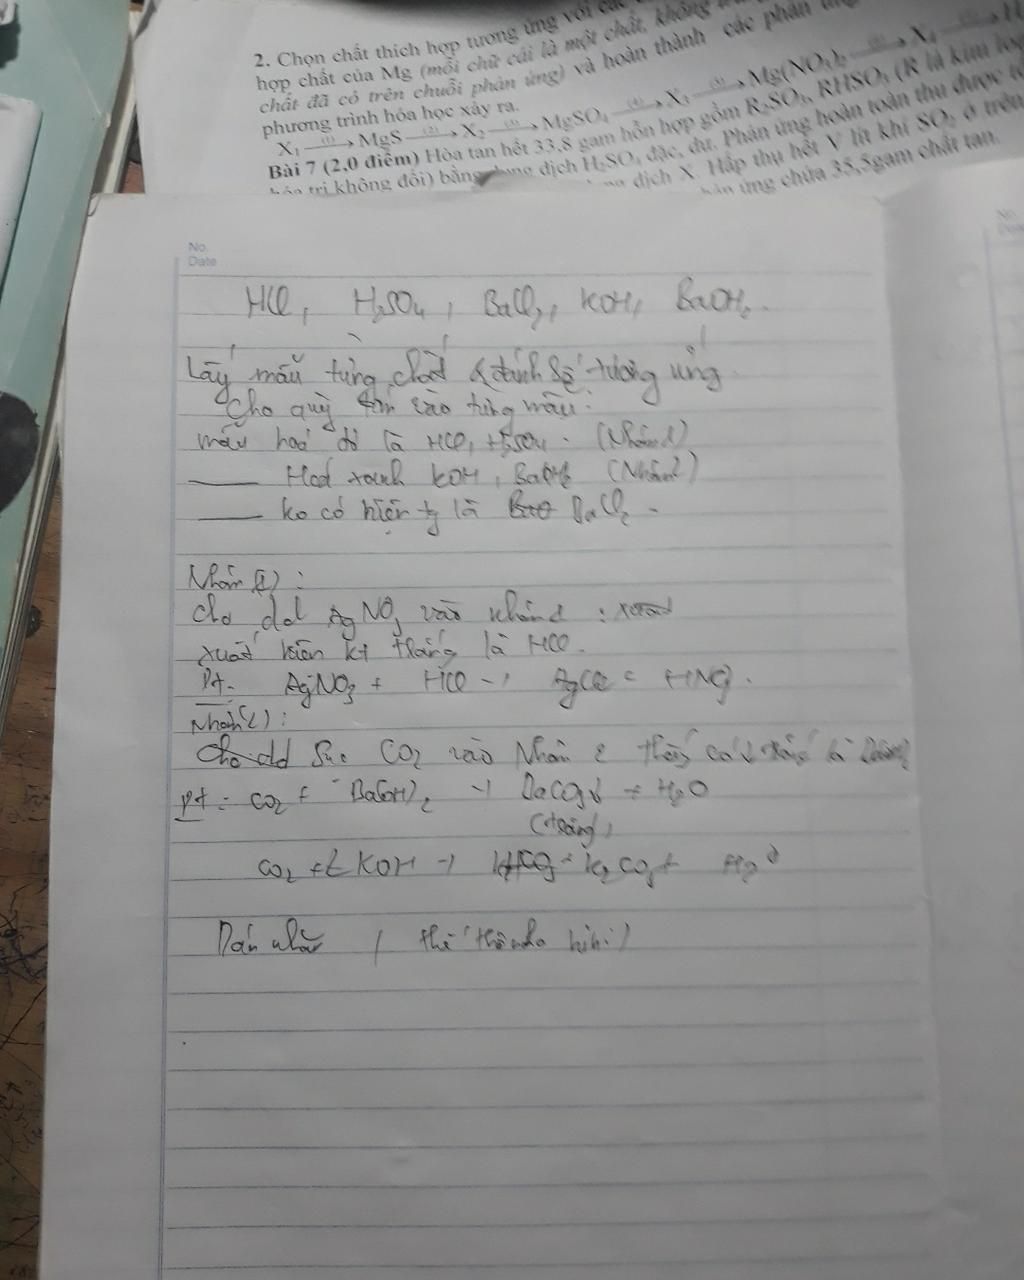 2. Chọn chất thích hợp tương ứng với các
hợp chất của Mg (mỗi chữ cái là một chất, không
chất đã có trên chuỗi phản ứng) và hoàn thành các phản ứng
phương trình hóa học xảy ra.
X₁ —(1)→ MgS —(2)→ X₂ —(3)→ MgSO₄ —(4)→ X₃ —(5)→ Mg(NO₃)₂ → X₄ →
Bài 7 (2,0 điểm) Hòa tan hết 33,8 gam hỗn hợp gồm R₂SO₃, RHSO₃ (R là kim loại
hóa trị không đổi) bằng dung dịch H₂SO₄ đặc, dư. Phản ứng hoàn toàn thu được
dịch X. Hấp thụ hết V lít khí SO₂ ở trên
ứng chứa 35,5gam chất tan.
No.
Date
HCl, H₂SO₄, BaCl₂, KOH, BaOH₂.
Lấy mẫu từng chất & đánh số tương ứng
Cho quỳ tím vào từng mẫu:
mẫu hoá đỏ là HCl, H₂SO₄. (Nhóm 1)
Hoá xanh KOH, BaOH₂ (Nhóm 2)
ko có hiện tg là BaCl₂.
Nhóm (1):
Cho dd AgNO₃ vào nhóm 1:
xuất hiện kt trắng là HCl.
Pt. AgNO₃ + HCl → AgCl + HNO₃.
Nhóm (2):
Sục CO₂ vào Nhóm 2 thấy có ↓ trắng là
Pt: CO₂ + Ba(OH)₂ → BaCO₃↓ + H₂O
(trắng)
CO₂ + 2KOH → K₂CO₃ + H₂O
Dán nhãn